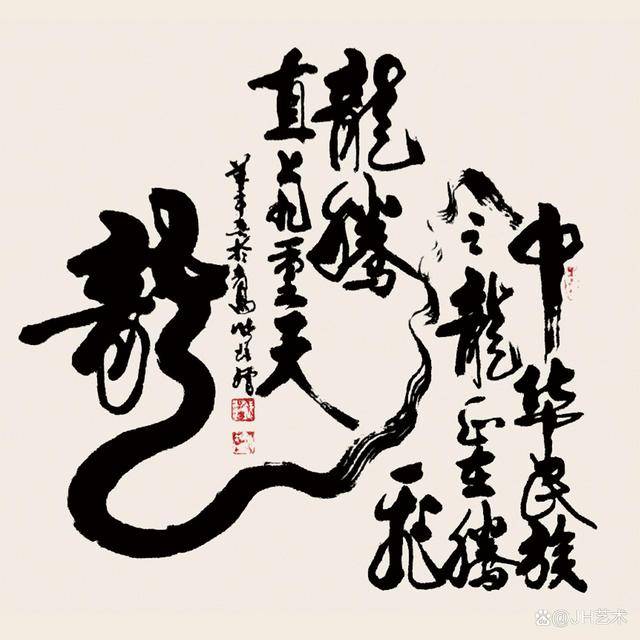 中華民族
之龍正在騰
飛
龍騰
直上九重天
龍
@JH艺术